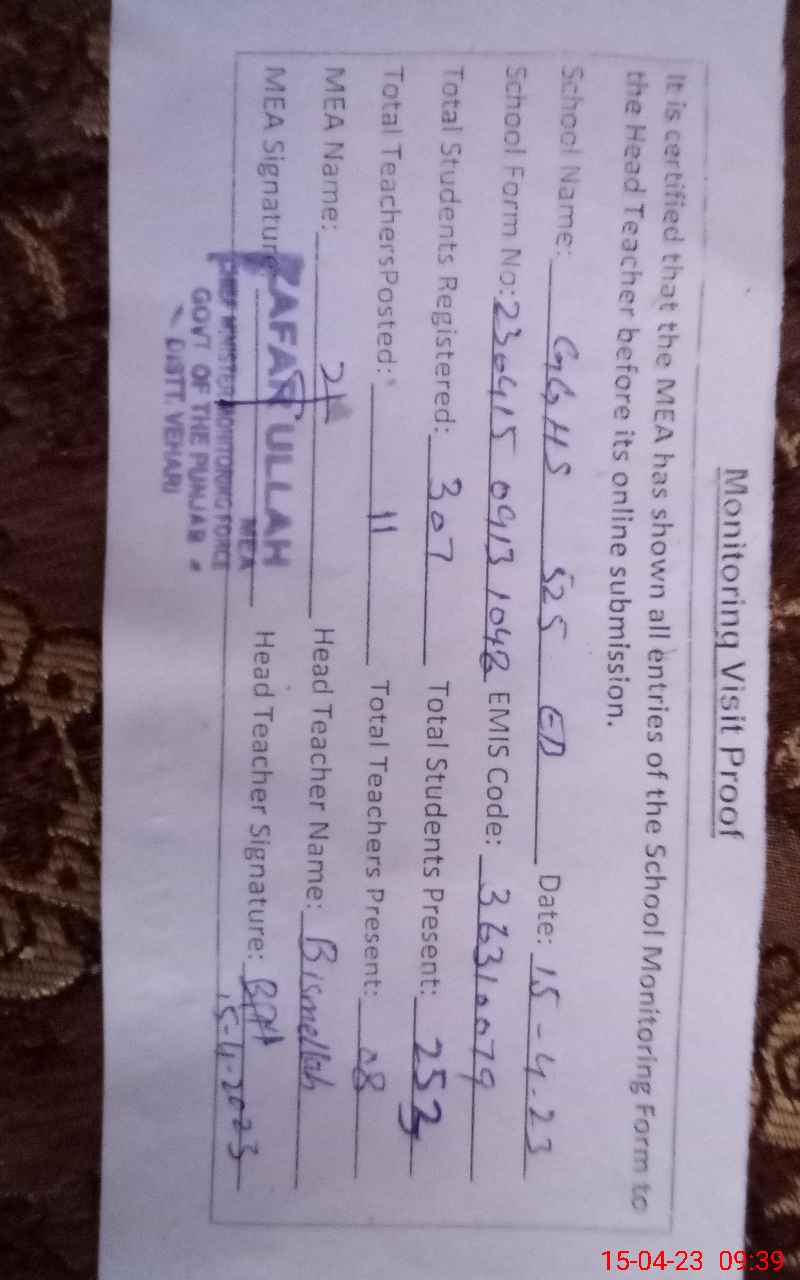 Monitoring Visit Proof
It is certified that the MEA has shown all entries of the School Monitoring Form to
the Head Teacher before its online submission.
School Name: GGHS 525 EB Date: 15-4-23
School Form No: 230415 0913 1048 EMIS Code: 36310079
Total Students Registered: 307 Total Students Present: 252
Total TeachersPosted: 11 Total Teachers Present: 08
MEA Name: Head Teacher Name: Bismellah
MEA Signature Head Teacher Signature:
15-4-2023
ZAFAR ULLAH
MEA
CHIEF MINISTER MONITORING FORCE
GOVT OF THE PUNJAB
DISTT. VEHARI
15-04-23 09:39